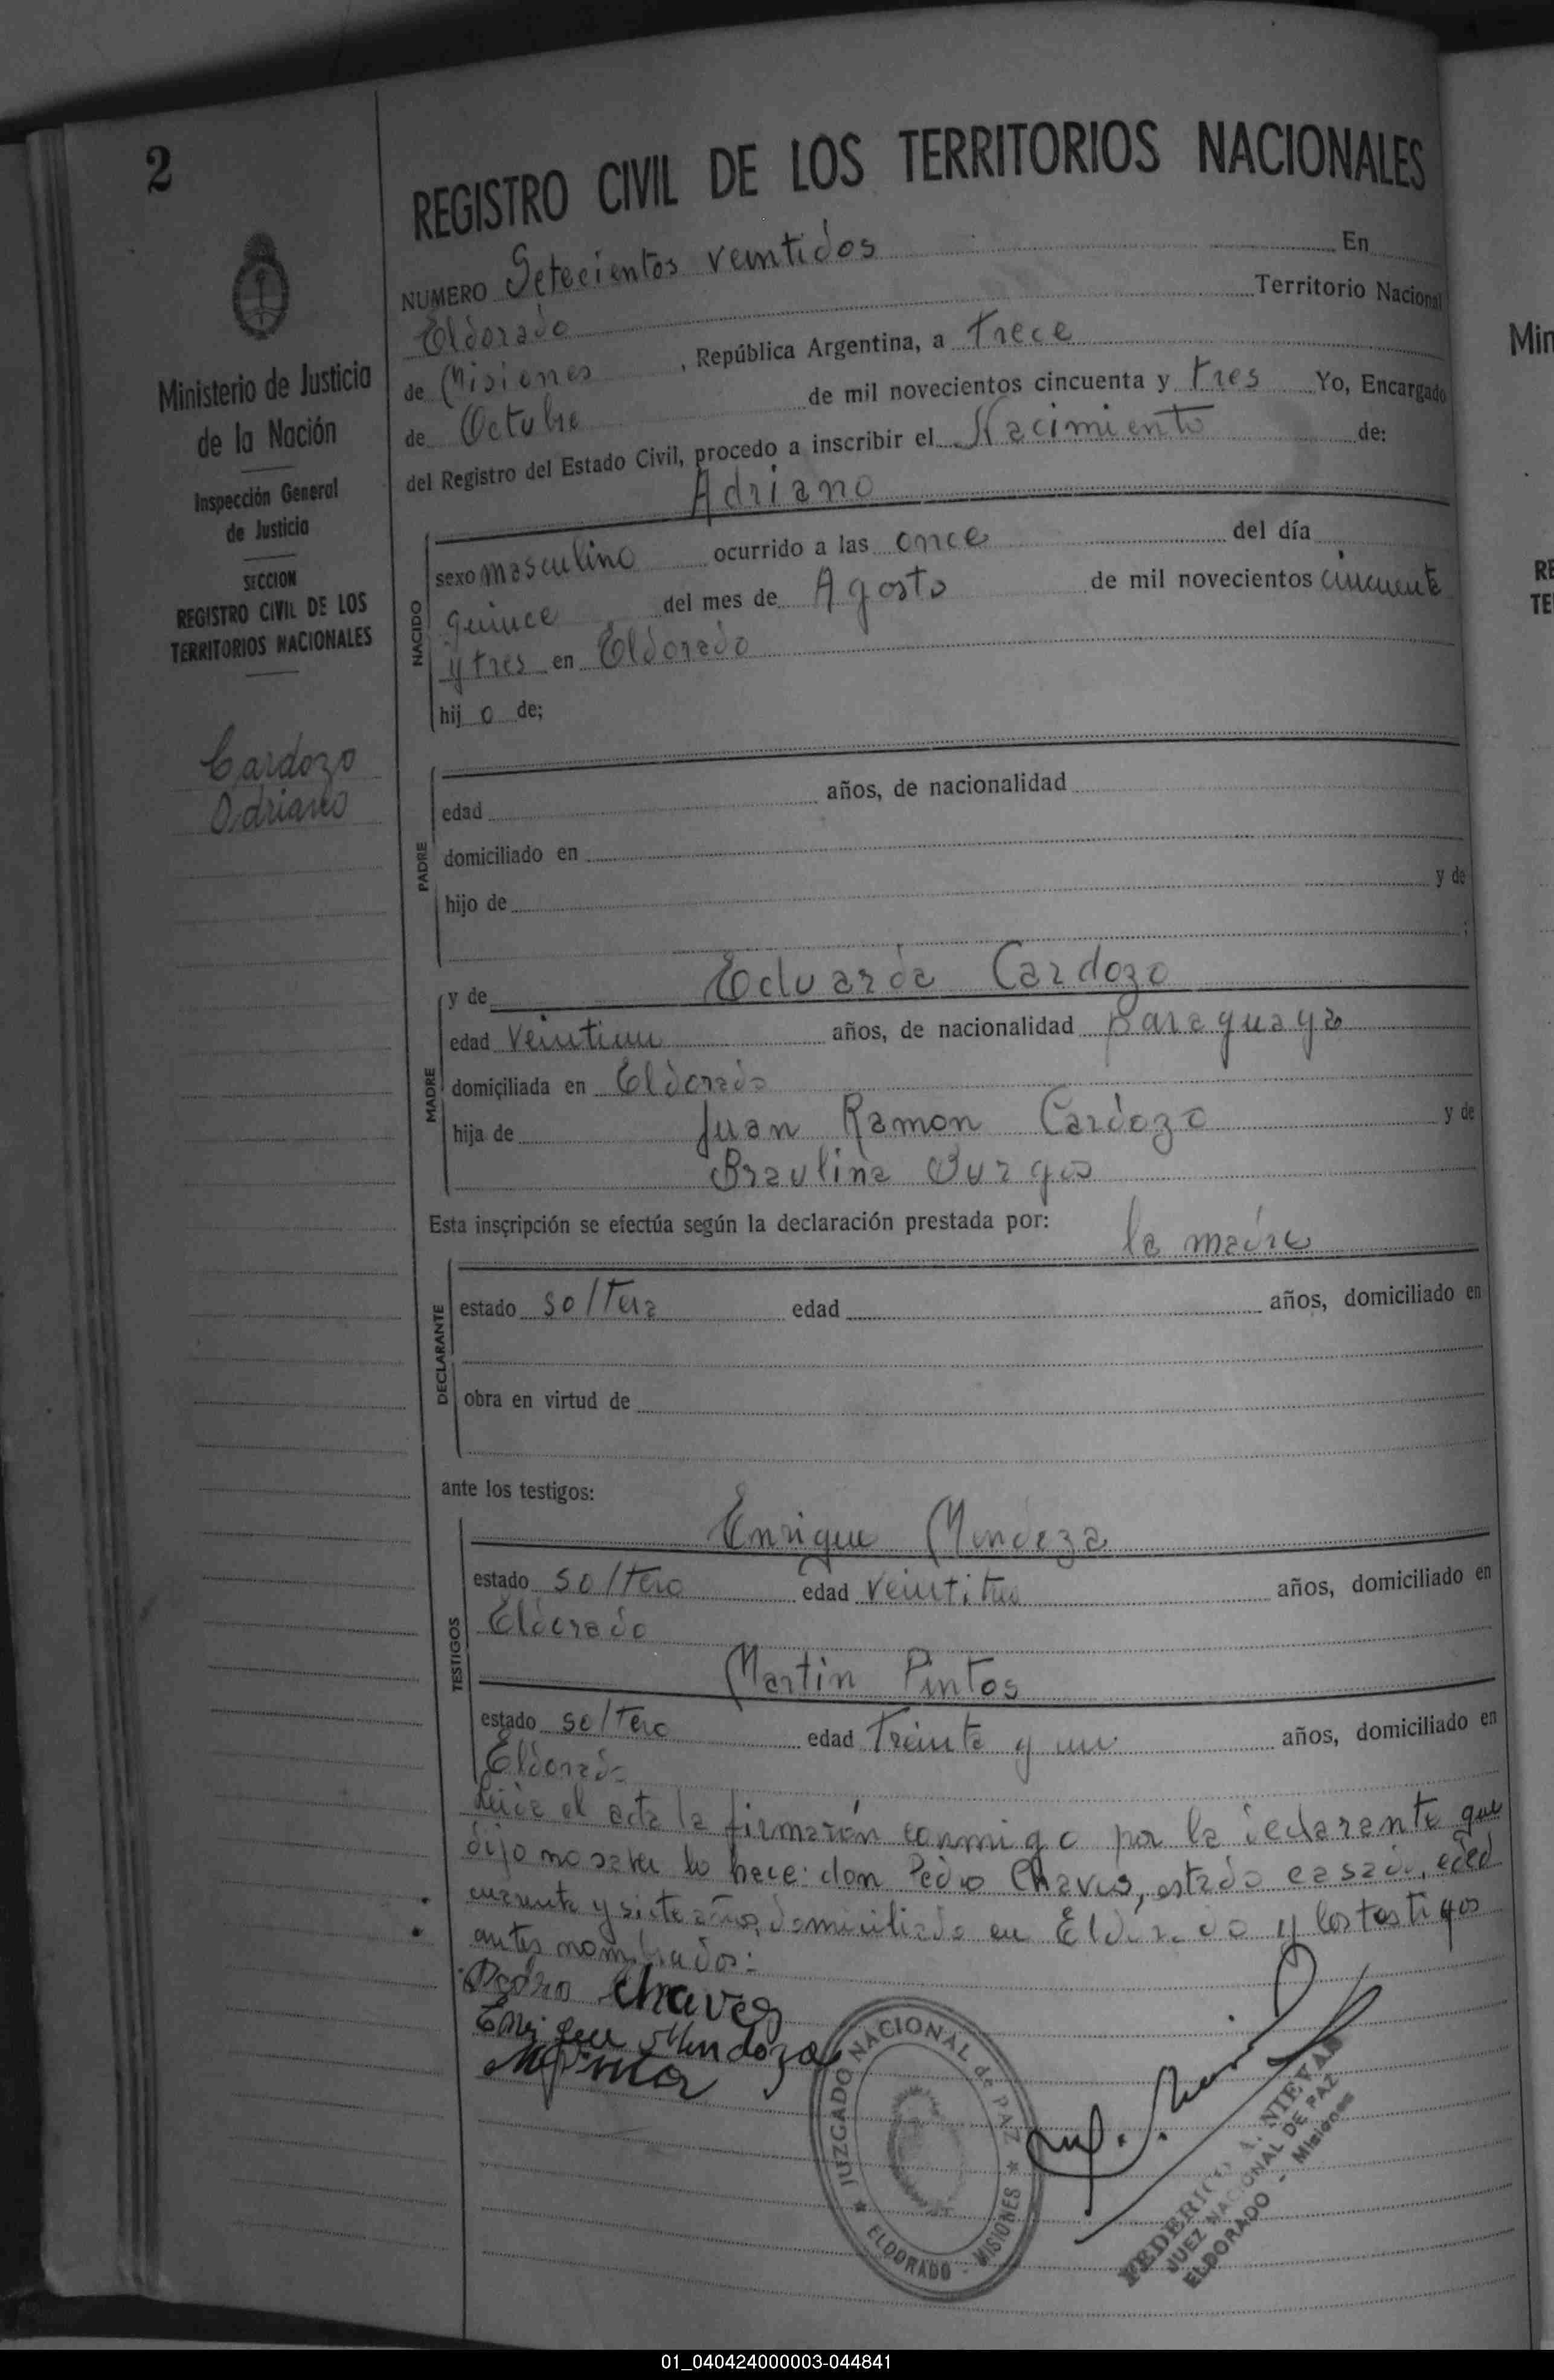 2
REGISTRO CIVIL DE LOS TERRITORIOS NACIONALES
NUMERO Setecientos veintidos En
Eldorado Territorio Nacional
de Misiones , República Argentina, a trece
de Octubre de mil novecientos cincuenta y tres Yo, Encargado
del Registro del Estado Civil, procedo a inscribir el Nacimiento de:
Adriano
Ministerio de Justicia
de la Nación
Inspección General
de Justicia
SECCION
REGISTRO CIVIL DE LOS
TERRITORIOS NACIONALES
Cardozo
Adriano
NACIDO
sexo masculino ocurrido a las once del día
quince del mes de Agosto de mil novecientos cincuenta
y tres en Eldorado
hij o de;
PADRE
edad años, de nacionalidad
domiciliado en
hijo de y de
;
MADRE
y de Eduarda Cardozo
edad veintiun años, de nacionalidad paraguaya
domiciliada en Eldorado
hija de Juan Ramon Cardozo y de
Braulina Burgos
Esta inscripción se efectúa según la declaración prestada por:
la madre
DECLARANTE
estado soltera edad años, domiciliado en
obra en virtud de
ante los testigos:
TESTIGOS
Enrique Mendoza
estado soltero edad veintitres años, domiciliado en
Eldorado
Martin Pintos
estado soltero edad Treinta y un años, domiciliado en
Eldorado
Leida el acta la firmarón conmigo por la declarante que
dijo no saber lo hace: don Pedro Chaves, estado casado, edad
cuarenta y siete años, domiciliado en Eldorado y los testigos
antes nombrados:
Pedro Chavez
Enrique Mendoza
JUZGADO NACIONAL de PAZ
ELDORADO - MISIONES
FEDERICO A. NIEVAS
JUEZ NACIONAL DE PAZ
ELDORADO - Misiones
Min
RE
TE
01_040424000003-044841